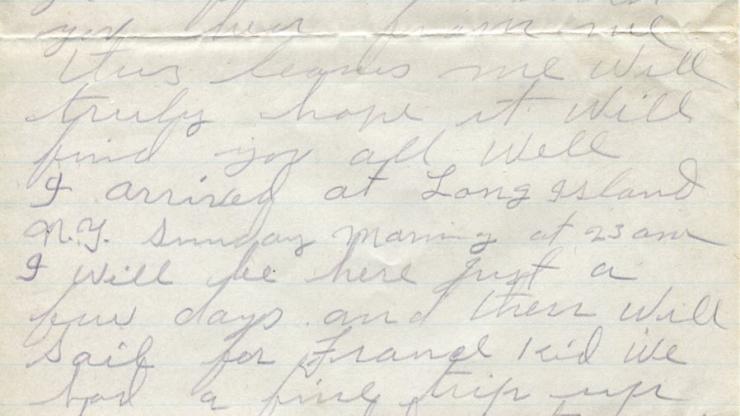 you hear from me
this leaves me Well
truly hope it Will
find you all Well
I arrived at Long Island
N.Y. Sunday Morning at 23 am
I Will be here Just a
few days and then Will
Sail for France Kid We
had a fine trip up